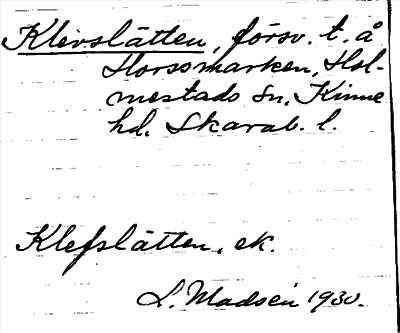 Klevslätten, försv. t. å
Horssmarken, Hol-
mestads sn, Kinne
hd, Skarab. l.
Klefslätten, ek.
L. Madsén 1930.